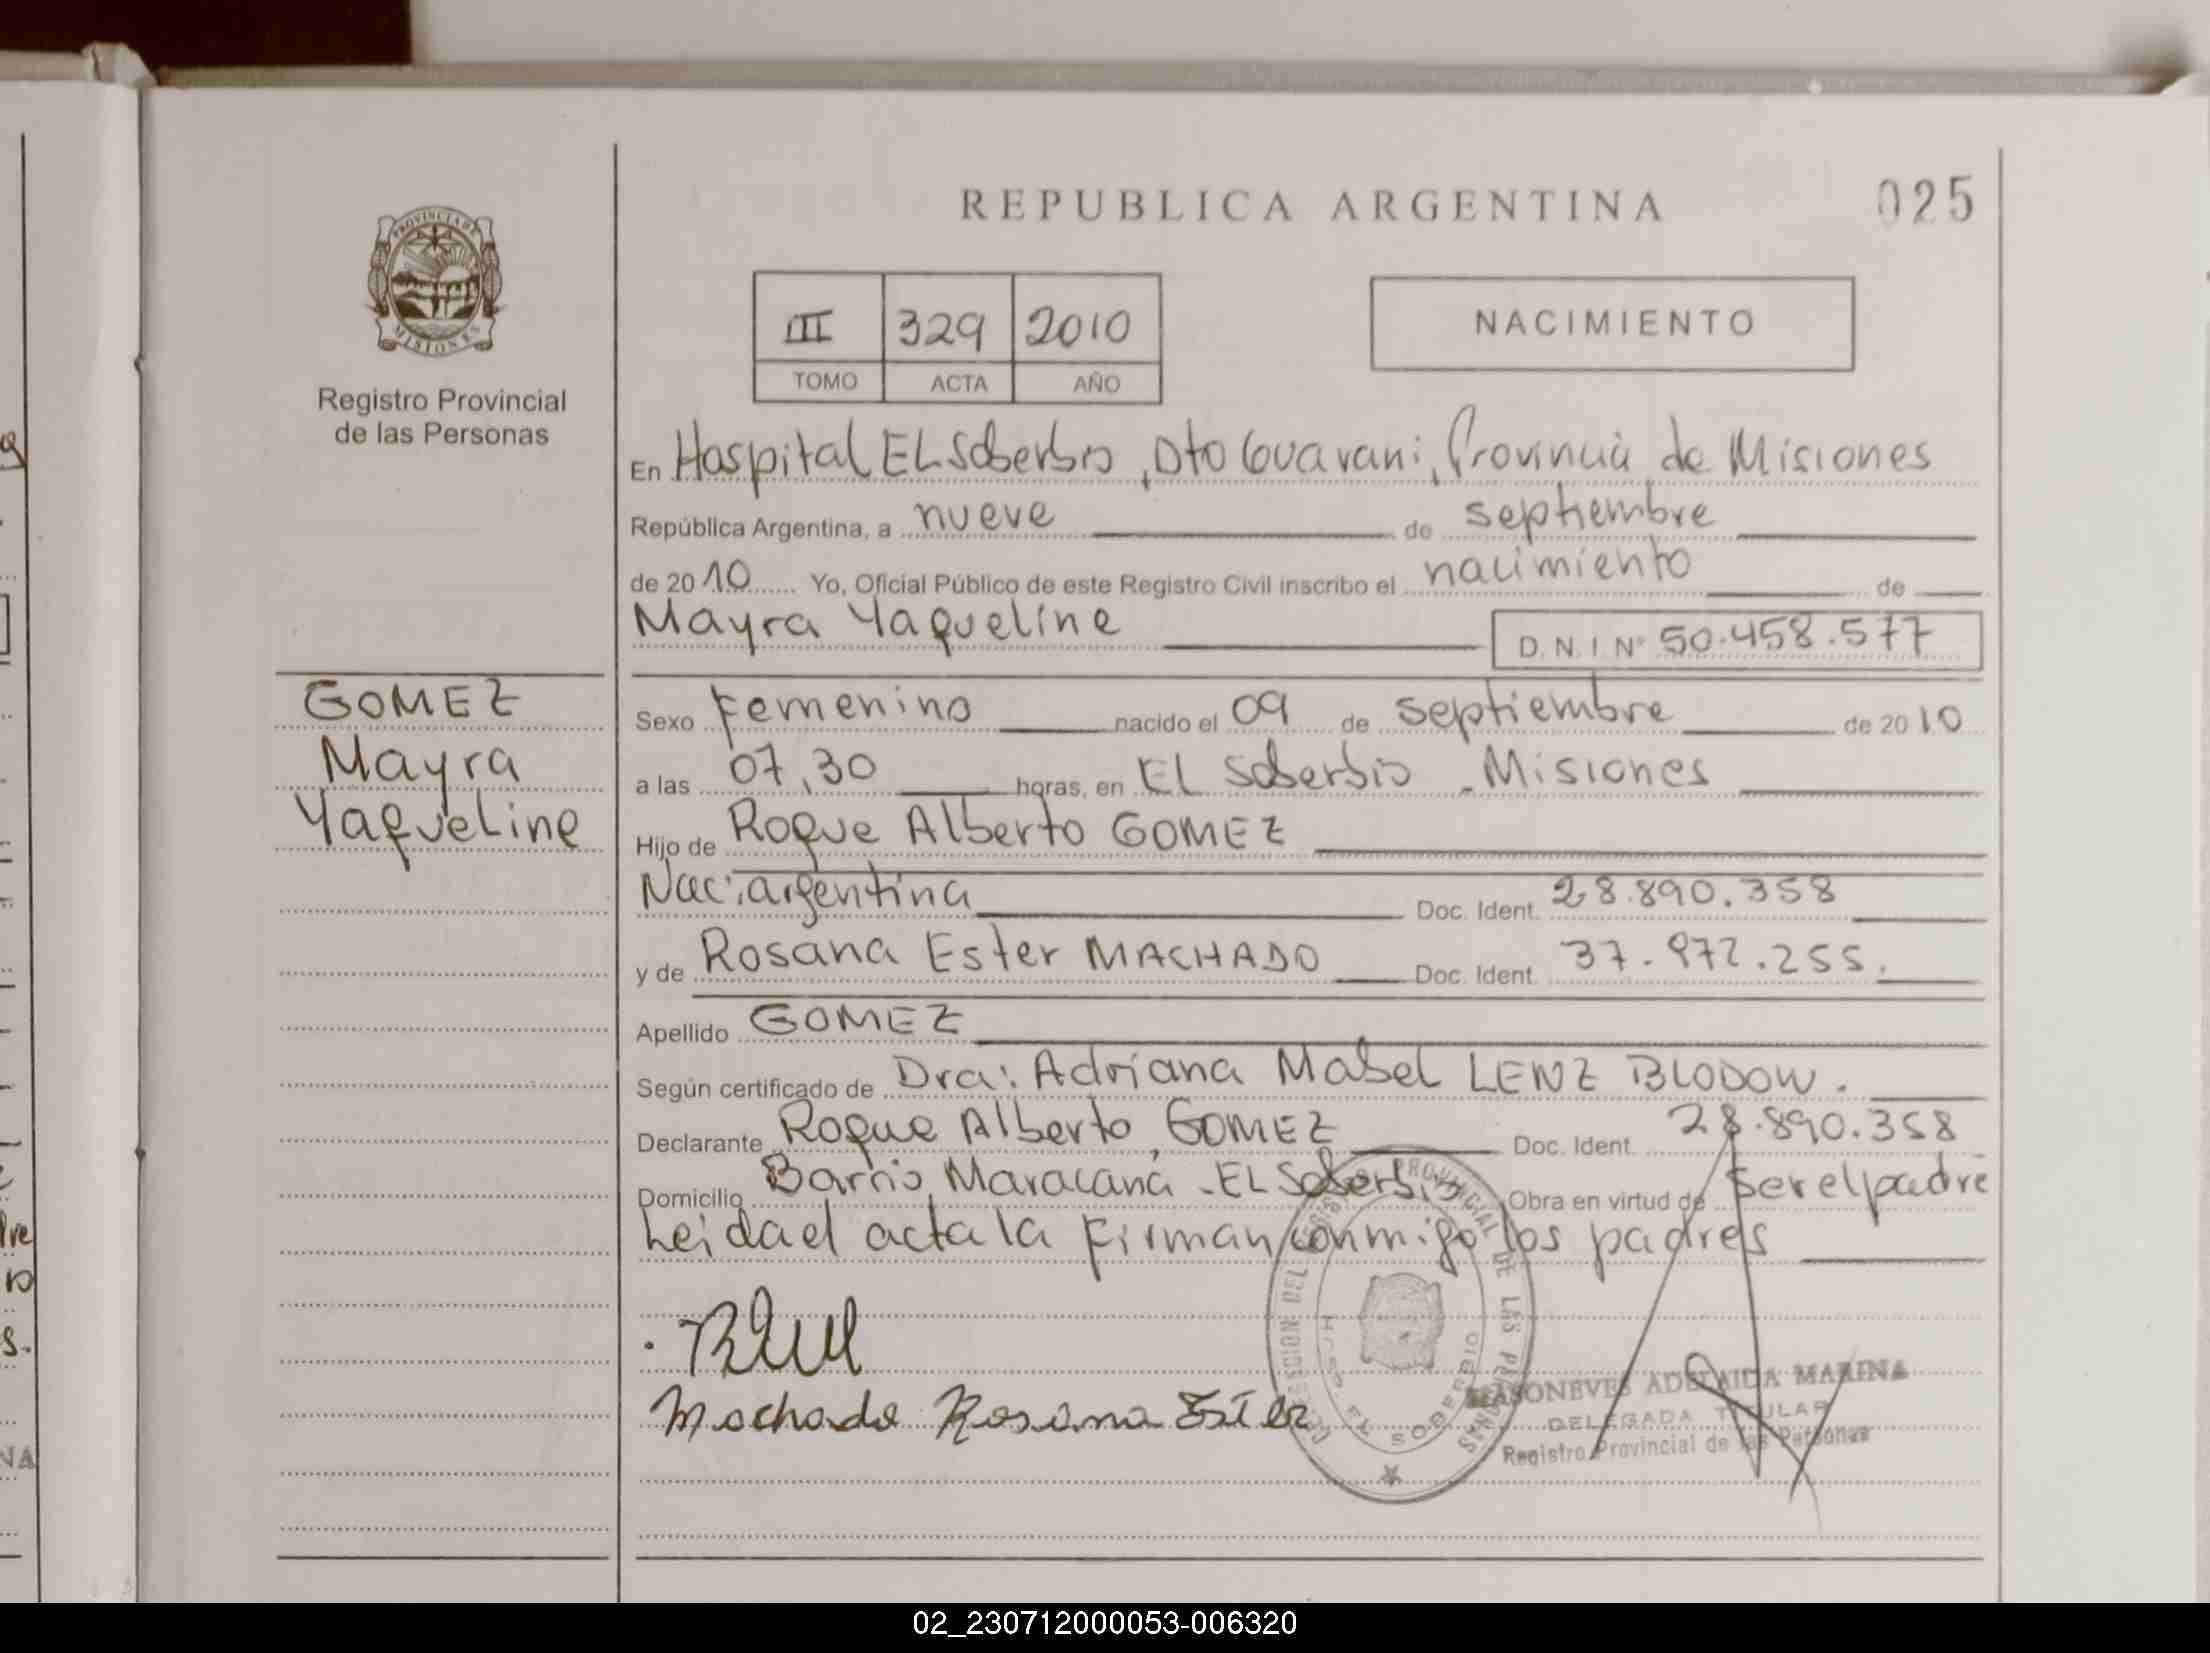 REPUBLICA ARGENTINA
025
PROVINCIA DE
MISIONES
Registro Provincial
de las Personas
III 329 2010
TOMO ACTA AÑO
NACIMIENTO
En Hospital EL Soberbio, Dto Guarani, Provincia de Misiones
República Argentina, a nueve de septiembre
de 2010 Yo, Oficial Público de este Registro Civil inscribo el nacimiento de
Mayra Yaqueline D.N.I Nº 50.458.577
GOMEZ
Mayra
Yaqueline
Sexo Femenino nacido el 09 de septiembre de 2010
a las 07,30 horas, en EL Soberbio - Misiones
Hijo de Roque Alberto GOMEZ
Nac: argentina Doc. Ident. 28.890.358
y de Rosana Ester MACHADO Doc. Ident. 37.972.255.
Apellido GOMEZ
Según certificado de Dra: Adriana Mabel LENZ BLODOW.
Declarante Roque Alberto GOMEZ Doc. Ident. 28.890.358
Domicilio Barrio Maracaná - EL Soberbio Obra en virtud de ser el padre
Leida el acta la firman conmigo los padres
Machado Rosana Ester
PROVINCIAL DE LAS
EL SOBERBIO
ADELAIDA MARINA
DELEGADA TITULAR
Registro Provincial de las Personas
02_230712000053-006320